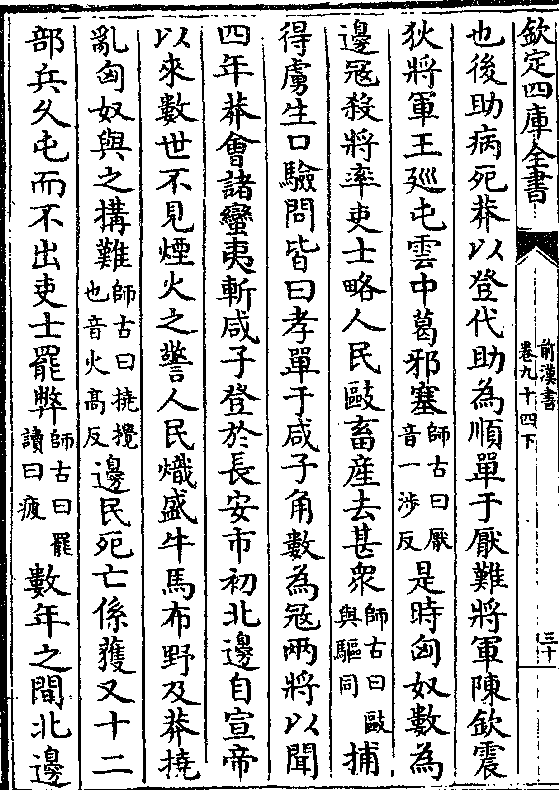 欽定四庫全書
前漢書
卷九十四下
三十
也後助病死莽以登代助為順單于厭難將軍陳欽震
狄將軍王廵屯雲中葛邪塞師古曰厭音一涉反是時匈奴數為
邊寇殺將率吏士略人民敺畜産去甚衆師古曰敺與驅同捕
得虜生口驗問皆曰孝單于咸子角數為寇兩將以聞
四年莽會諸蠻夷斬咸子登於長安市初北邊自宣帝
以來數世不見煙火之警人民熾盛牛馬布野及莽撓
亂匈奴與之搆難師古曰撓攪也音火高反邊民死亡係獲又十二
部兵久屯而不出吏士罷弊師古曰罷讀曰疲數年之間北邊